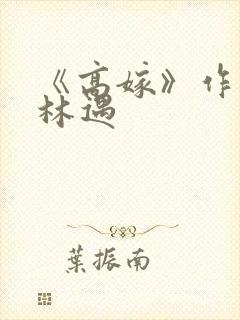 《高嫁》作
林遇
葉振南